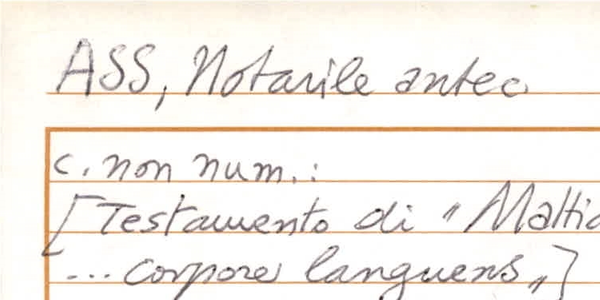 ASS, Notarile antec
c. non num.:
[Testamento di "Mattia
... corpore languens"]